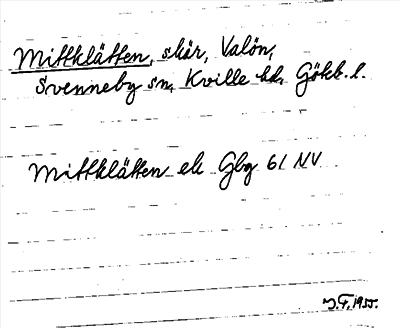 Mittklätten, skär, Valön,
Svenneby sn, Kville hd, Göteb. l.
Mittklätten ek Gbg 61 NV
1955.